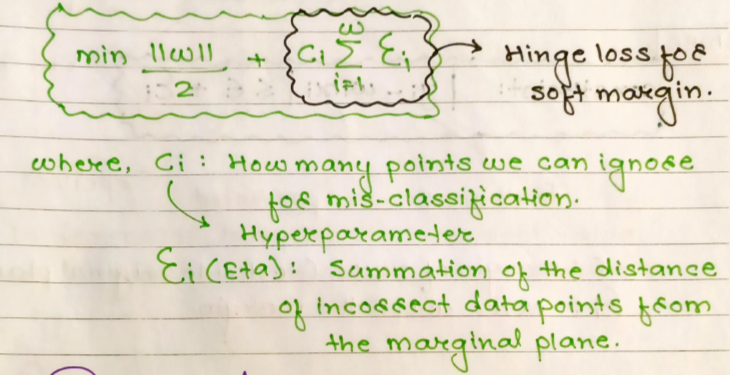 min ||ω||/2 + Ci ω∑i=1 Ɛi → Hinge loss for
soft margin.
where, Ci : How many points we can ignore
for mis-classification.
Hyperparameter
Ɛi (Eta) : Summation of the distance
of incorrect data points from
the marginal plane.